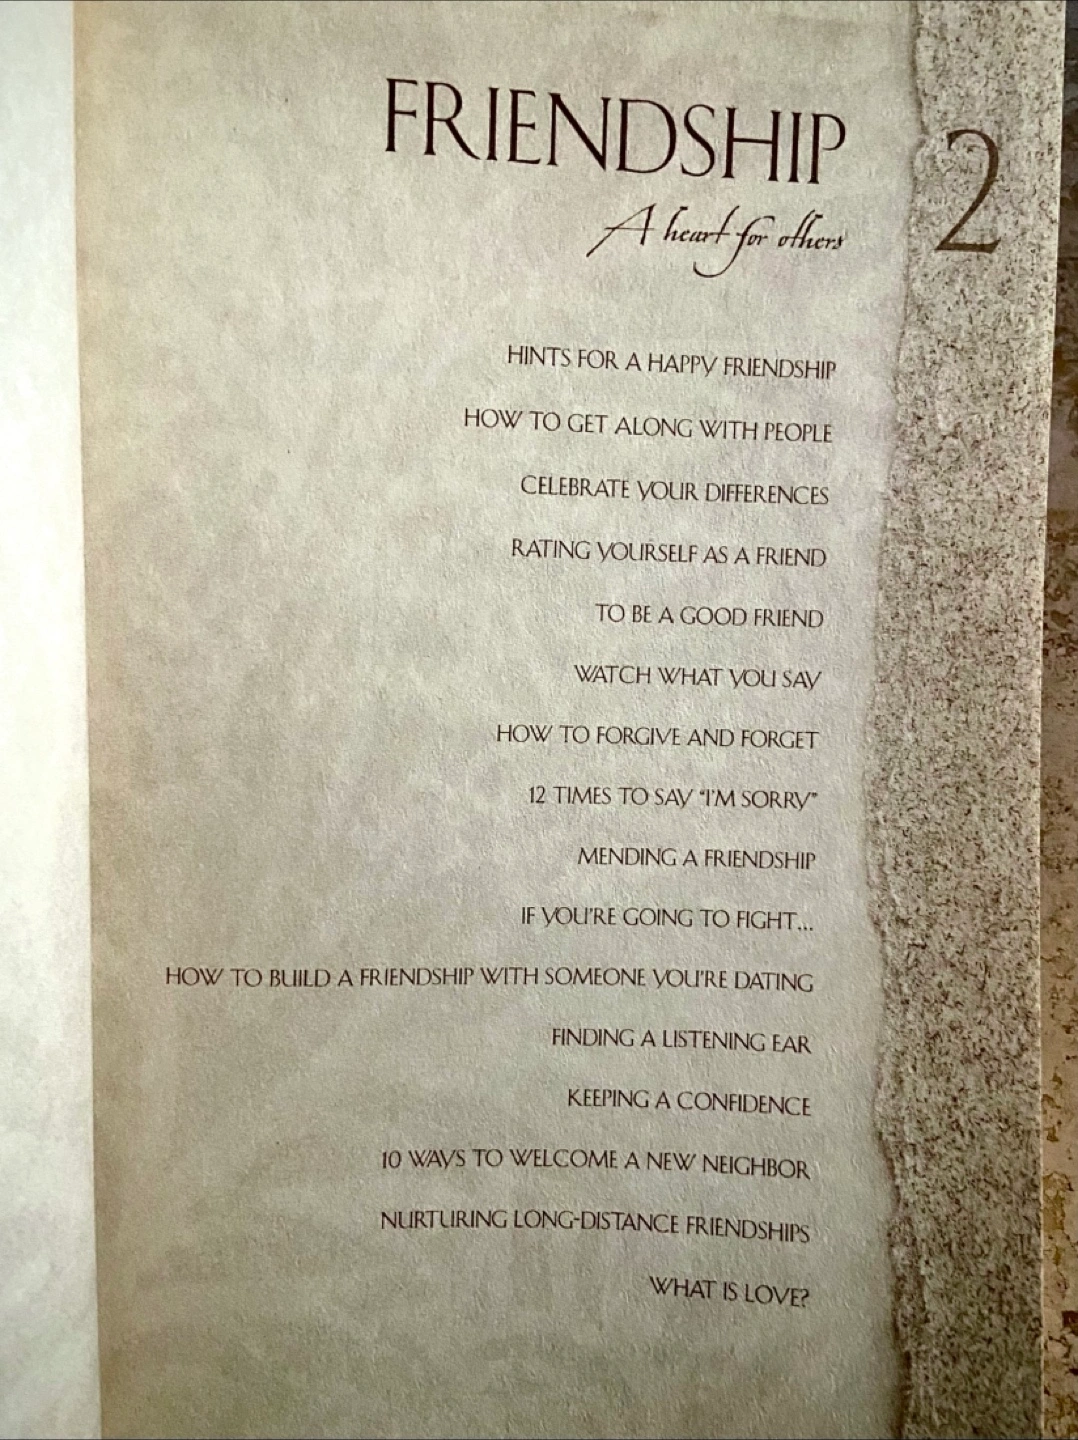 FRIENDSHIP
2
A heart for others
HINTS FOR A HAPPY FRIENDSHIP
HOW TO GET ALONG WITH PEOPLE
CELEBRATE YOUR DIFFERENCES
RATING YOURSELF AS A FRIEND
TO BE A GOOD FRIEND
WATCH WHAT YOU SAY
HOW TO FORGIVE AND FORGET
12 TIMES TO SAY “I’M SORRY”
MENDING A FRIENDSHIP
IF YOU’RE GOING TO FIGHT...
HOW TO BUILD A FRIENDSHIP WITH SOMEONE YOU’RE DATING
FINDING A LISTENING EAR
KEEPING A CONFIDENCE
10 WAYS TO WELCOME A NEW NEIGHBOR
NURTURING LONG-DISTANCE FRIENDSHIPS
WHAT IS LOVE?